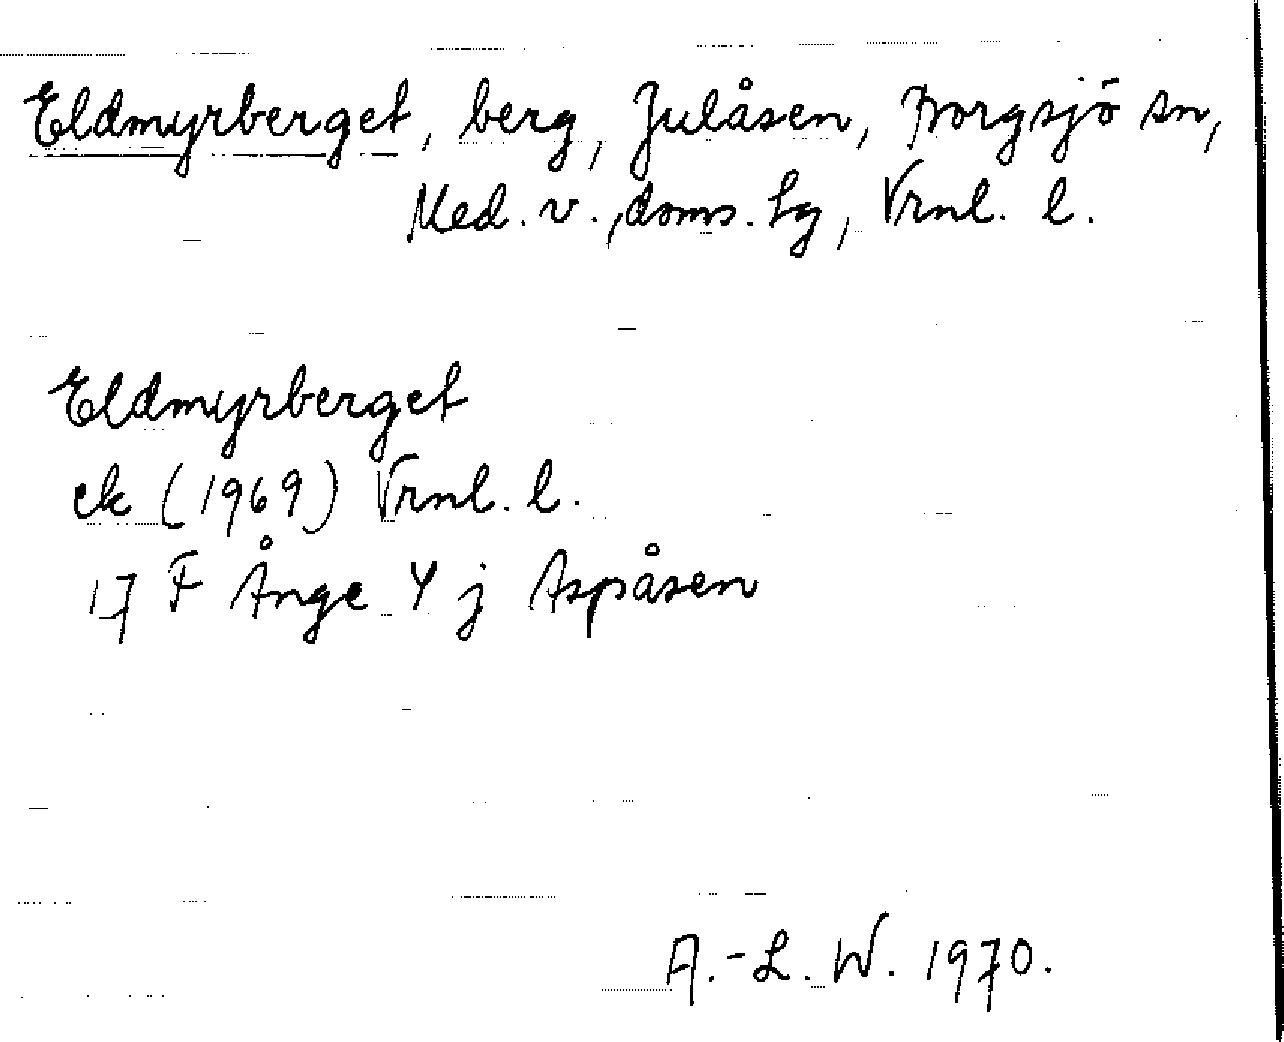 Eldmyrberget, berg, Julåsen, Borgsjö sn,
Med. v., doms. hg, Vrnl. l.
Eldmyrberget
ek (1969) Vrnl. l.
17 F Ånge Y j Aspåsen
A.-L. W. 1970.